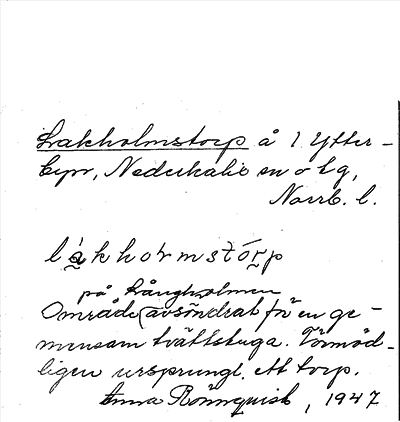 Lakholmstorp å 1 Ytter-
byn, Nederkalix sn o tg,
Norrb. l.
lákkormstórp
på Långholmen
Område avsöndrat för en ge-
mensam tvättstuga. Förmod-
ligen ursprungl. ett torp.
Anna Rönnquist, 1947